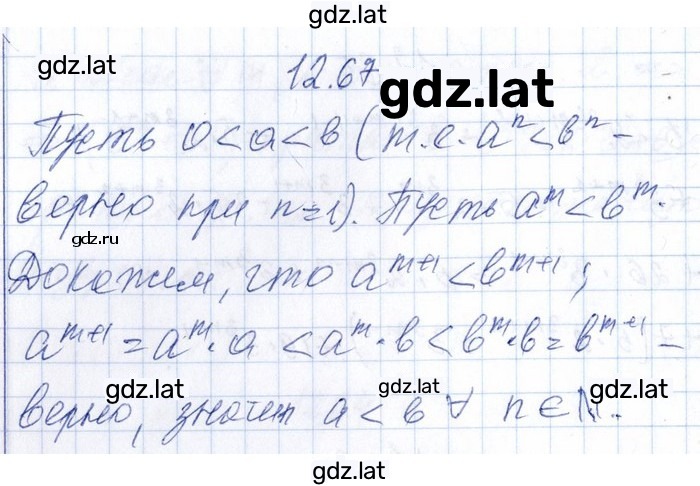 gdz.lat
gdz.lat
12.67
gdz.lat
Пусть 0<a<b (т.е. aⁿ<bⁿ –
верно при n=1). Пусть aᵐ<bᵐ.
gdz.ru
Докажем, что aᵐ⁺¹<bᵐ⁺¹;
aᵐ⁺¹=aᵐ·a<aᵐ·b<bᵐ·b=bᵐ⁺¹ –
gdz.lat gdz.lat gdz.lat
верно, значит a<b ∀ n∈N.
gdz.lat